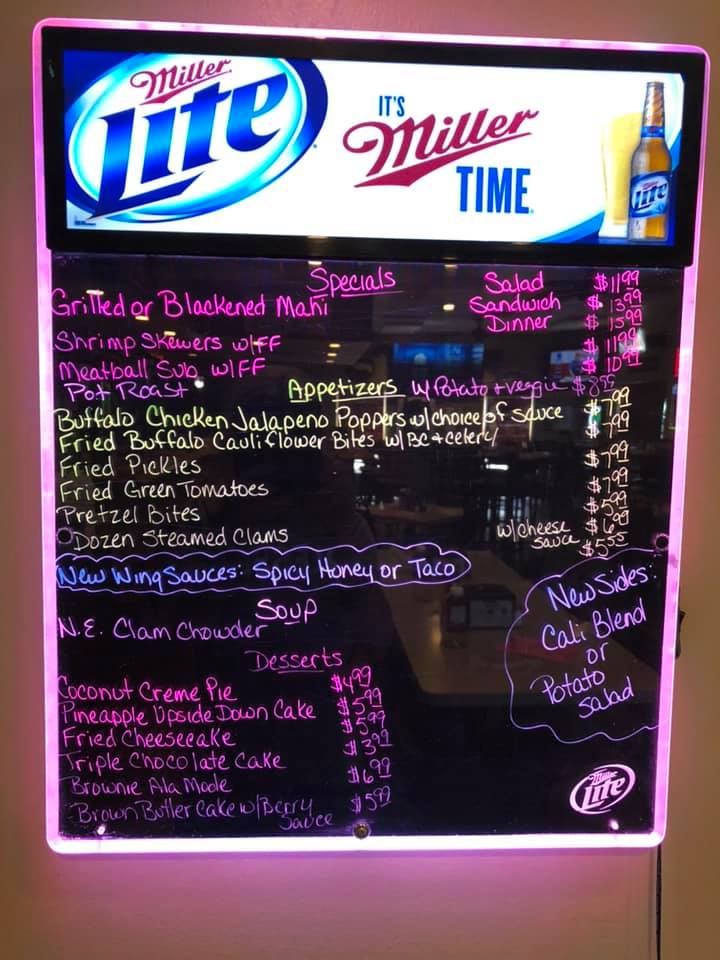 Miller Lite
IT'S
Miller
TIME
Miller Lite
Specials
Grilled or Blackened Mahi
Salad $11 99
Sandwich $13 99
Dinner $15 99
Shrimp Skewers w/FF $11 99
Meatball Sub w/FF $10 99
Pot Roast w/Potato + veggie
Appetizers
Buffalo Chicken Jalapeno Poppers w/choice of sauce $7 99
Fried Buffalo Cauliflower Bites w/BC + celery $7 99
Fried Pickles $7 99
Fried Green Tomatoes $7 99
Pretzel Bites $5 99
w/cheese sauce $6 99
Dozen Steamed Clams $5 55
New Wing Sauces: Spicy Honey or Taco
Soup
N.E. Clam Chowder
New Sides:
Cali Blend
or
Potato
salad
Desserts
Coconut Creme Pie $4 99
Pineapple Upside Down Cake $5 99
Fried Cheesecake $5 99
Triple Chocolate Cake $3 99
Brownie Ala Mode $6 99
Brown Butter Cake w/Berry Sauce $5 99
Miller Lite